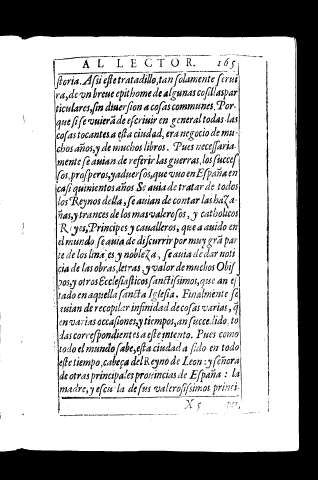 AL LECTOR. 165
storia. Assi este tratadillo, tan solamente serui
ra, de vn breue epithome de algunas cosillas par
ticulares, sin diuersion a cosas communes. Por-
que si se vuiera de escriuir en general todas las
cosas tocantes a esta ciudad, era negocio de mu-
chos años, y de muchos libros. Pues necessaria-
mente se auian de referir las guerras, los succes
sos, prosperos, y aduersos, que vuo en España en
casi quinientos años. Se auia de tratar de todos
los Reynos della, se auian de contar las haza-
ñas, y trances de los mas valerosos, y catholicos
Reyes, Principes y caualleros, que a auido en
el mundo se auia de discurrir por muy grā par
te de los linajes y nobleza, se auia de dar noti
cia de las obras, letras, y valor de muchos Obis
pos, y otros Ecclesiasticos sanctissimos, que an es
tado en aquella sancta Iglesia. Finalmente se
auian de recopilar infinidad de cosas varias, q̄
en varias occasiones, y tiempos, an succedido, to
das correspondientes a este intento. Pues como
todo el mundo sabe, esta ciudad a sido en todo
este tiempo, cabeça del Reyno de Leon: y señora
de otras principales prouincias de España: la
madre, y escuela de sus valerosissimos princi-
X 5 pes,